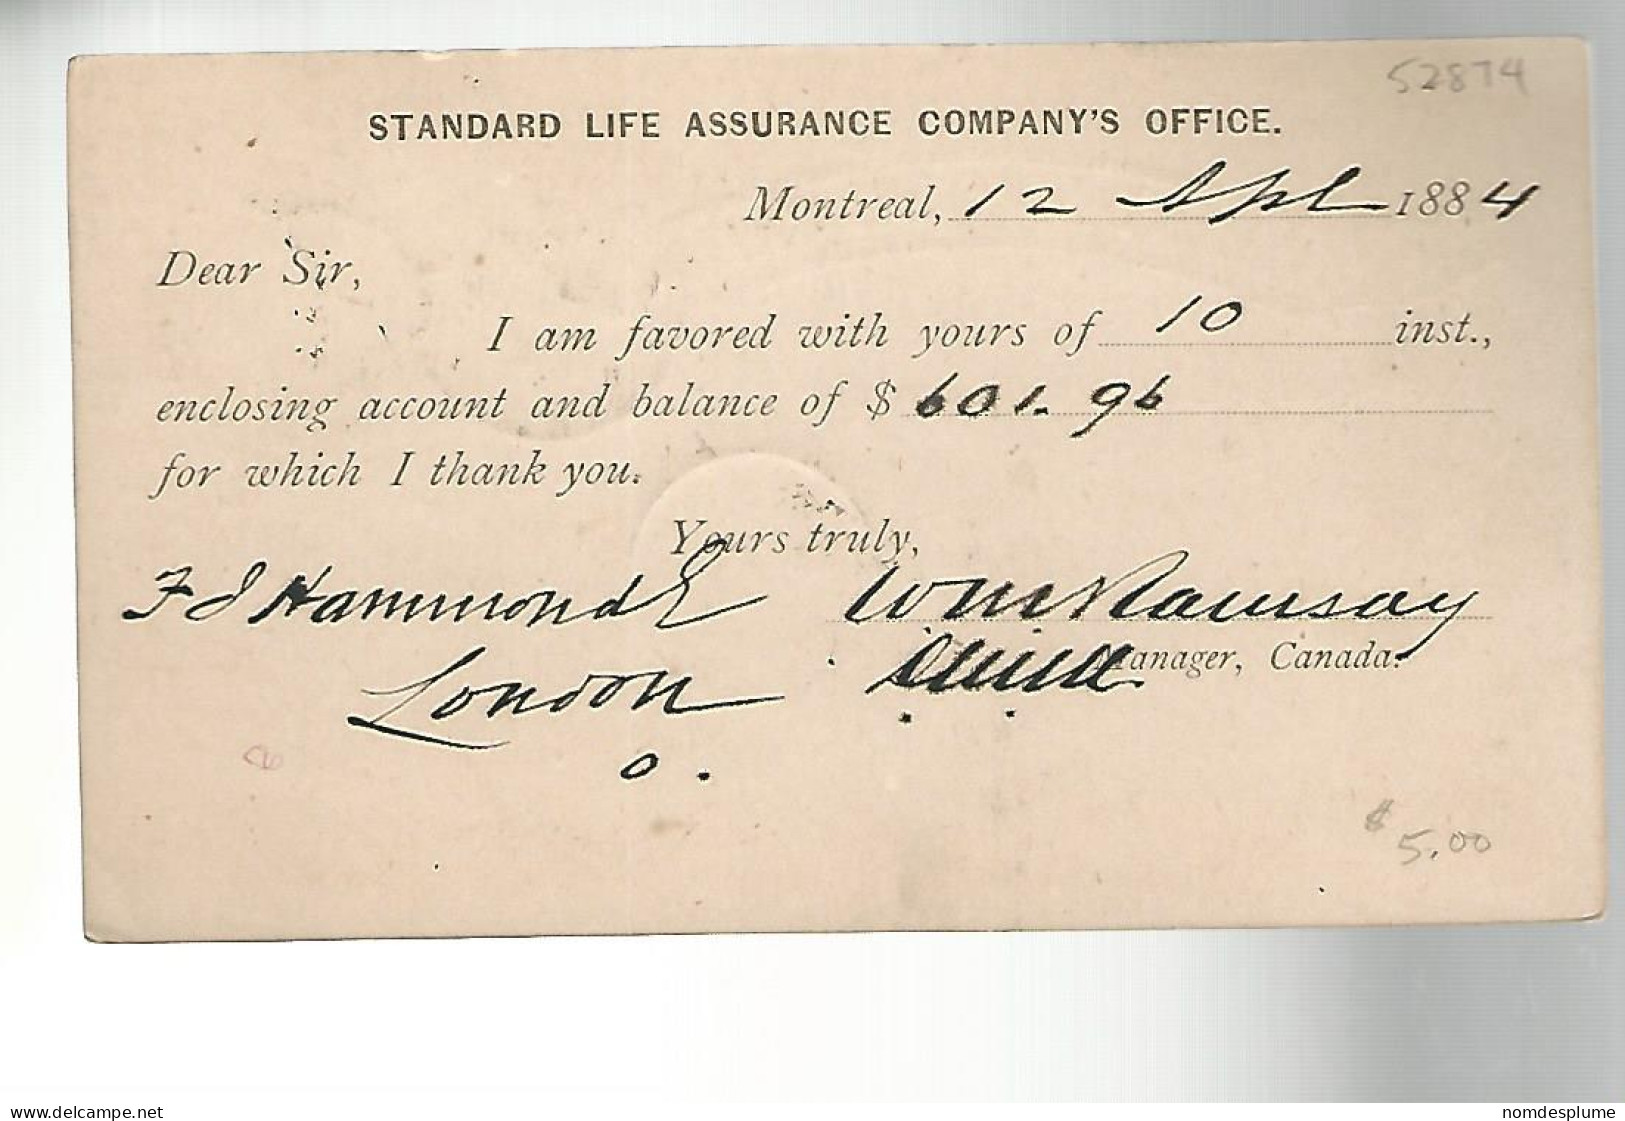 52874
STANDARD LIFE ASSURANCE COMPANY'S OFFICE.
Montreal, 12 Apl 1884
Dear Sir,
I am favored with yours of 10 inst.,
enclosing account and balance of $ 601.96
for which I thank you.
Yours truly,
F J Hammond E Wm Ramsay
London Manager, Canada.
O.
$5.00
delcampe.net nomdesplume